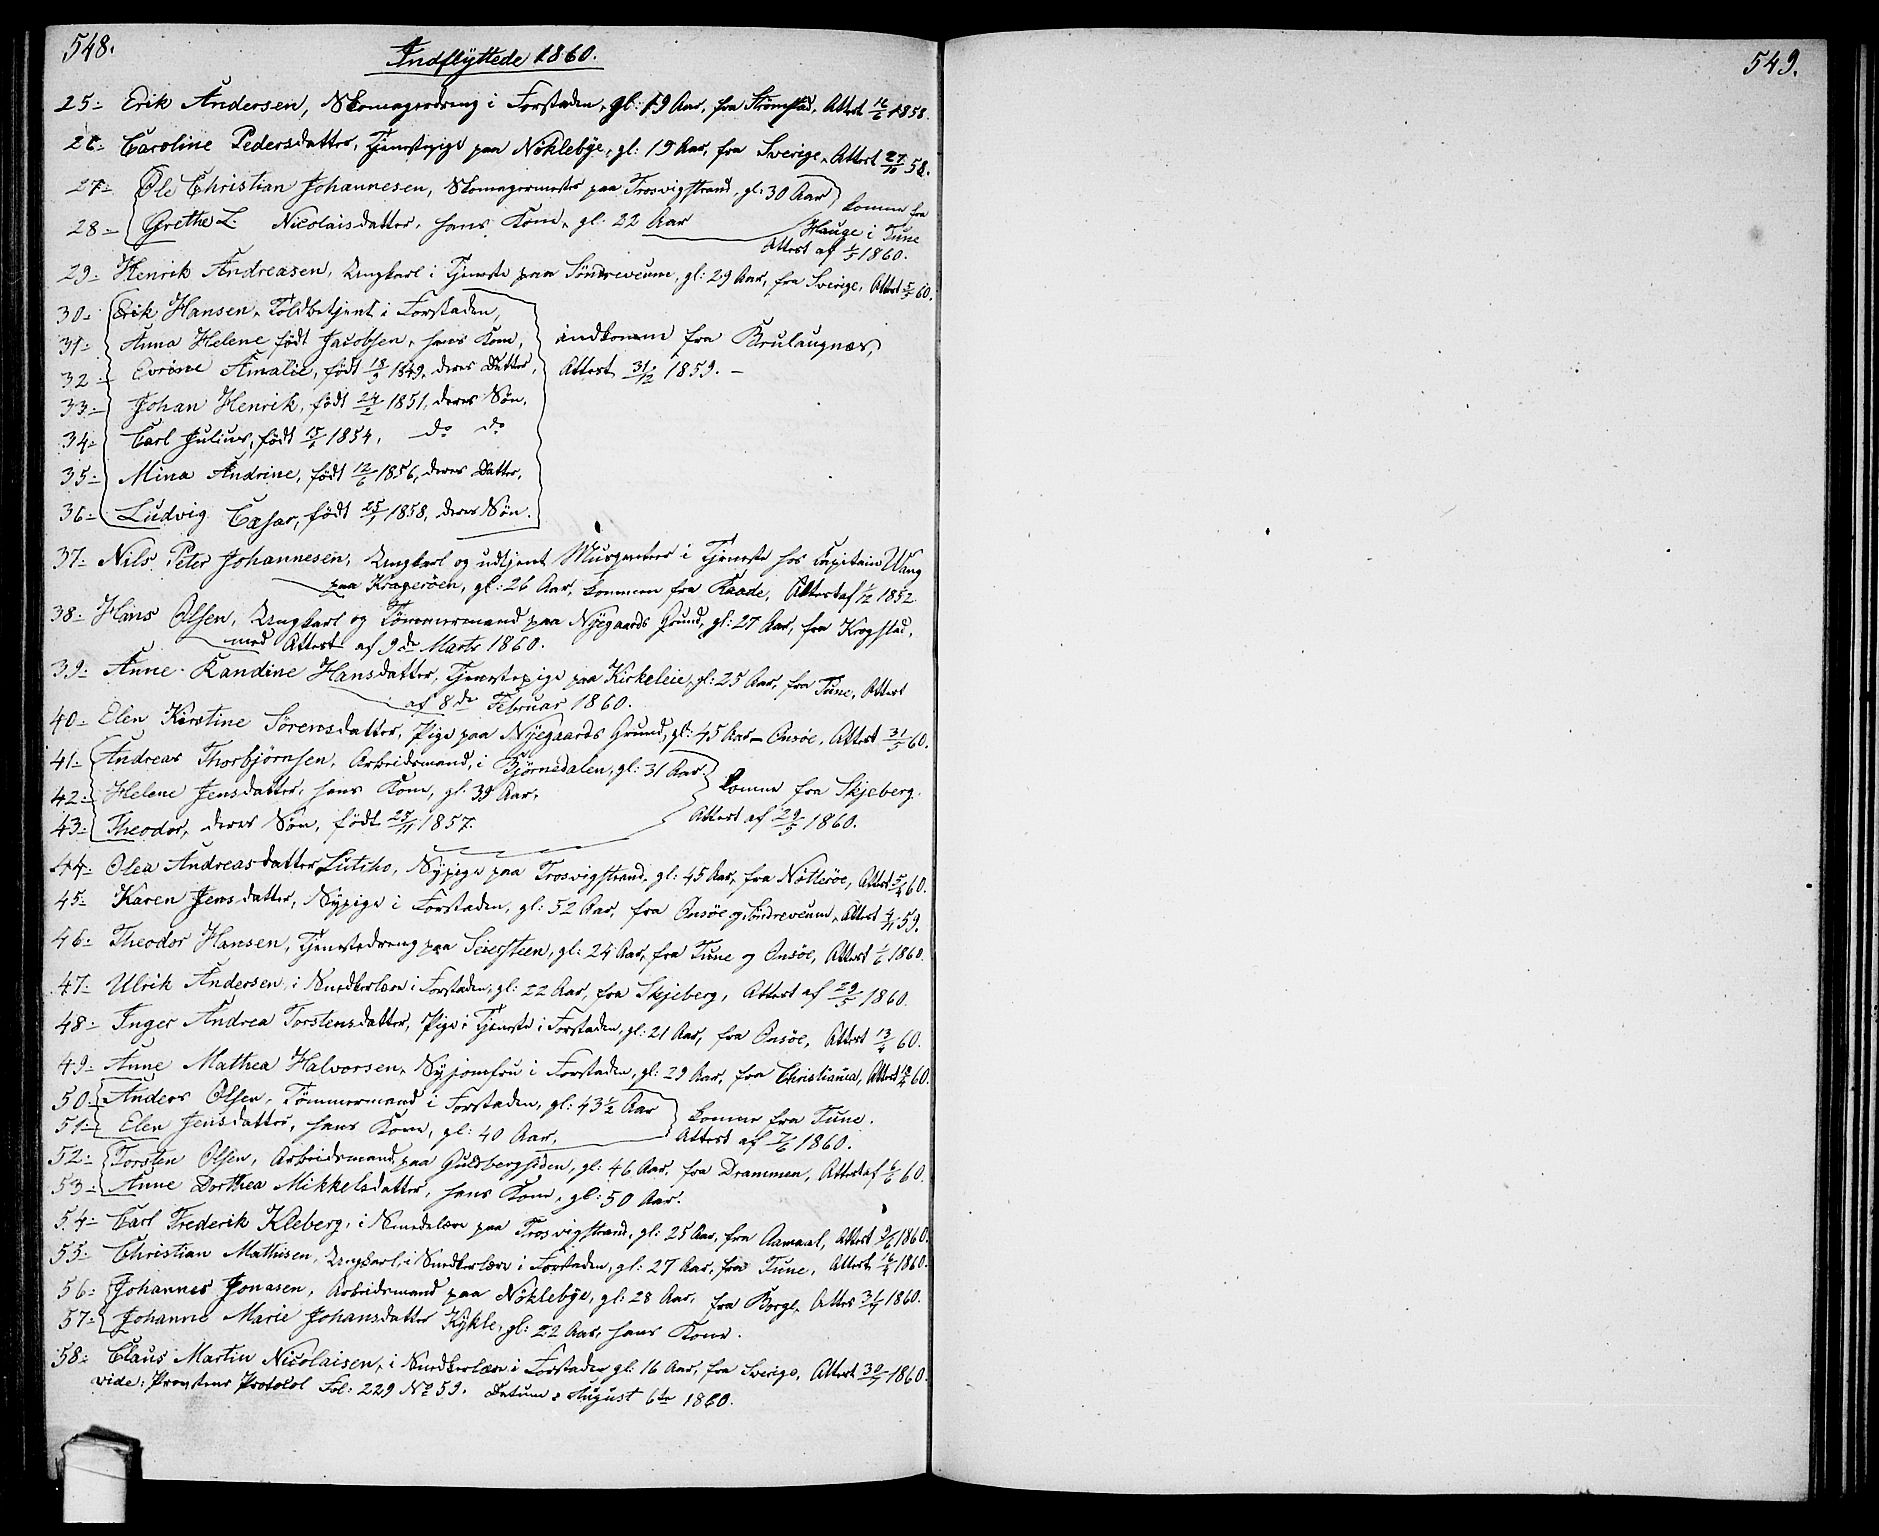 548.
Indflyttede 1860.
25- Erik Andersen, Skomagerdreng i Forstaden, gl: 19 Aar, fra Strømstad, Attest 16/6 1858.
26- Caroline Pedersdatter, Tjenestepige paa Nöklebye, gl: 19 Aar, fra Sverige, Attest 27/10 58.
27- Ole Christian Johannesen, Skomagermester paa Trosvigstrand, gl: 30 Aar
28- Grethe L. Nicolaisdatter, hans Kone, gl: 22 Aar
komne fra
Hauge i Tune
Attest af 1860.
29- Henrik Andreasen, Ungkarl i Tjeneste paa Söndreveum, gl: 29 Aar, fra Sverige, Attest 60.
30- Erik Hansen, Toldbetjent i Forstaden,
31- Anna Helene født Jacobsen, hans Kone,
32- Evrine Amalie, født 18/9 1849, deres Datter,
33- Johan Henrik, født 24/2 1851, deres Søn,
34- Carl Julius, født 1854, do do
35- Mina Andrine, født 12/6 1856, deres Datter,
36- Ludvig Cæsar, født 25/1 1858, deres Søn.
indkomne fra Brulaugnæs,
Attest 31/12 1859. -
37- Nils Peter Johannesen, Ungkarl og udtjent Musqueteer i Tjeneste hos Capitain Wang
paa Kragerøen, gl: 26 Aar, kommen fra Raade, Attest af 1/12 1852.
38- Hans Olsen, Ungkarl og Tömmermand paa Nyegaards Grund, gl: 27 Aar, fra Krogstad,
med Attest af 9de Marts 1860.
39- Anne Randine Hansdatter, Tjenestepige paa Kirkeleie, gl: 25 Aar, fra Tune, Attest
af 8de Februar 1860.
40- Elen Kirstine Sörensdatter, Pige paa Nyegaards Grund, gl: 45 Aar - Onsøe, Attest 31/5 60.
41- Andreas Thorbjørnsen, Arbeidsmand, i Bjørnedalen, gl: 31 Aar
42- Helene Jensdatter, hans Kone, gl: 39 Aar,
43- Theodor, deres Søn, født 25/11 1857.
komne fra Skjeberg.
Attest af 29/5 1860.
44- Olea Andreasdatter Lutiho, Sypige paa Trosvigstrand, gl: 45 Aar, fra Nötteröe, Attest 5/4 60.
45- Karen Jensdatter, Sypige i Forstaden, gl: 52 Aar, fra Onsøe og Söndreveum, Attest 4/11 59.
46- Theodor Hansen, Tjenestedreng paa Seiersteen, gl: 24 Aar, fra Tune og Onsøe, Attest 1/6 1860.
47- Ulrik Andersen, i Snedkerlære i Forstaden, gl: 22 Aar, fra Skjeberg, Attest af 29/5 1860.
48- Inger Andrea Torstensdatter, Pige i Tjeneste i Forstaden, gl: 21 Aar, fra Onsøe, Attest 13/4 60.
49- Anne Mathea Halvorsen, Syjomfru i Forstaden, gl: 29 Aar, fra Christiania, Attest 60.
50- Anders Olsen, Tömmermand i Forstaden, gl: 43½ Aar
51- Elen Jensdatter, hans Kone, gl: 40 Aar,
komne fra Tune.
Attest af 7/6 1860.
52- Torsten Olsen, Arbeidsmand paa Guldbergsiden, gl: 46 Aar, fra Drammen, Attest af 60.
53- Anne Dorthea Mikkelsdatter, hans Kone, gl: 50 Aar.
54- Carl Frederik Kleberg, i Smedelære paa Trosvigstrand, gl: 25 Aar, fra Aamaal, Attest 9/6 1860.
55- Christian Mathisen, Ungkarl, i Snedkerlære i Forstaden, gl: 27 Aar, fra Tune, Attest 16/4 1860.
56- Johannes Jonasen, Arbeidsmand paa Nöklebye, gl: 28 Aar, fra Borge, Attes 1860.
57- Johanne Marie Johansdatter Kykle, gl: 22 Aar, hans Kone.
58- Claus Martin Nicolaisen, i Snedkerlære i Forstaden gl: 16 Aar, fra Sverige, Attest 30/7 1860.
vide: Provstens Protocol Fol: 229 No 59. Datum: August 6te 1860.
549.